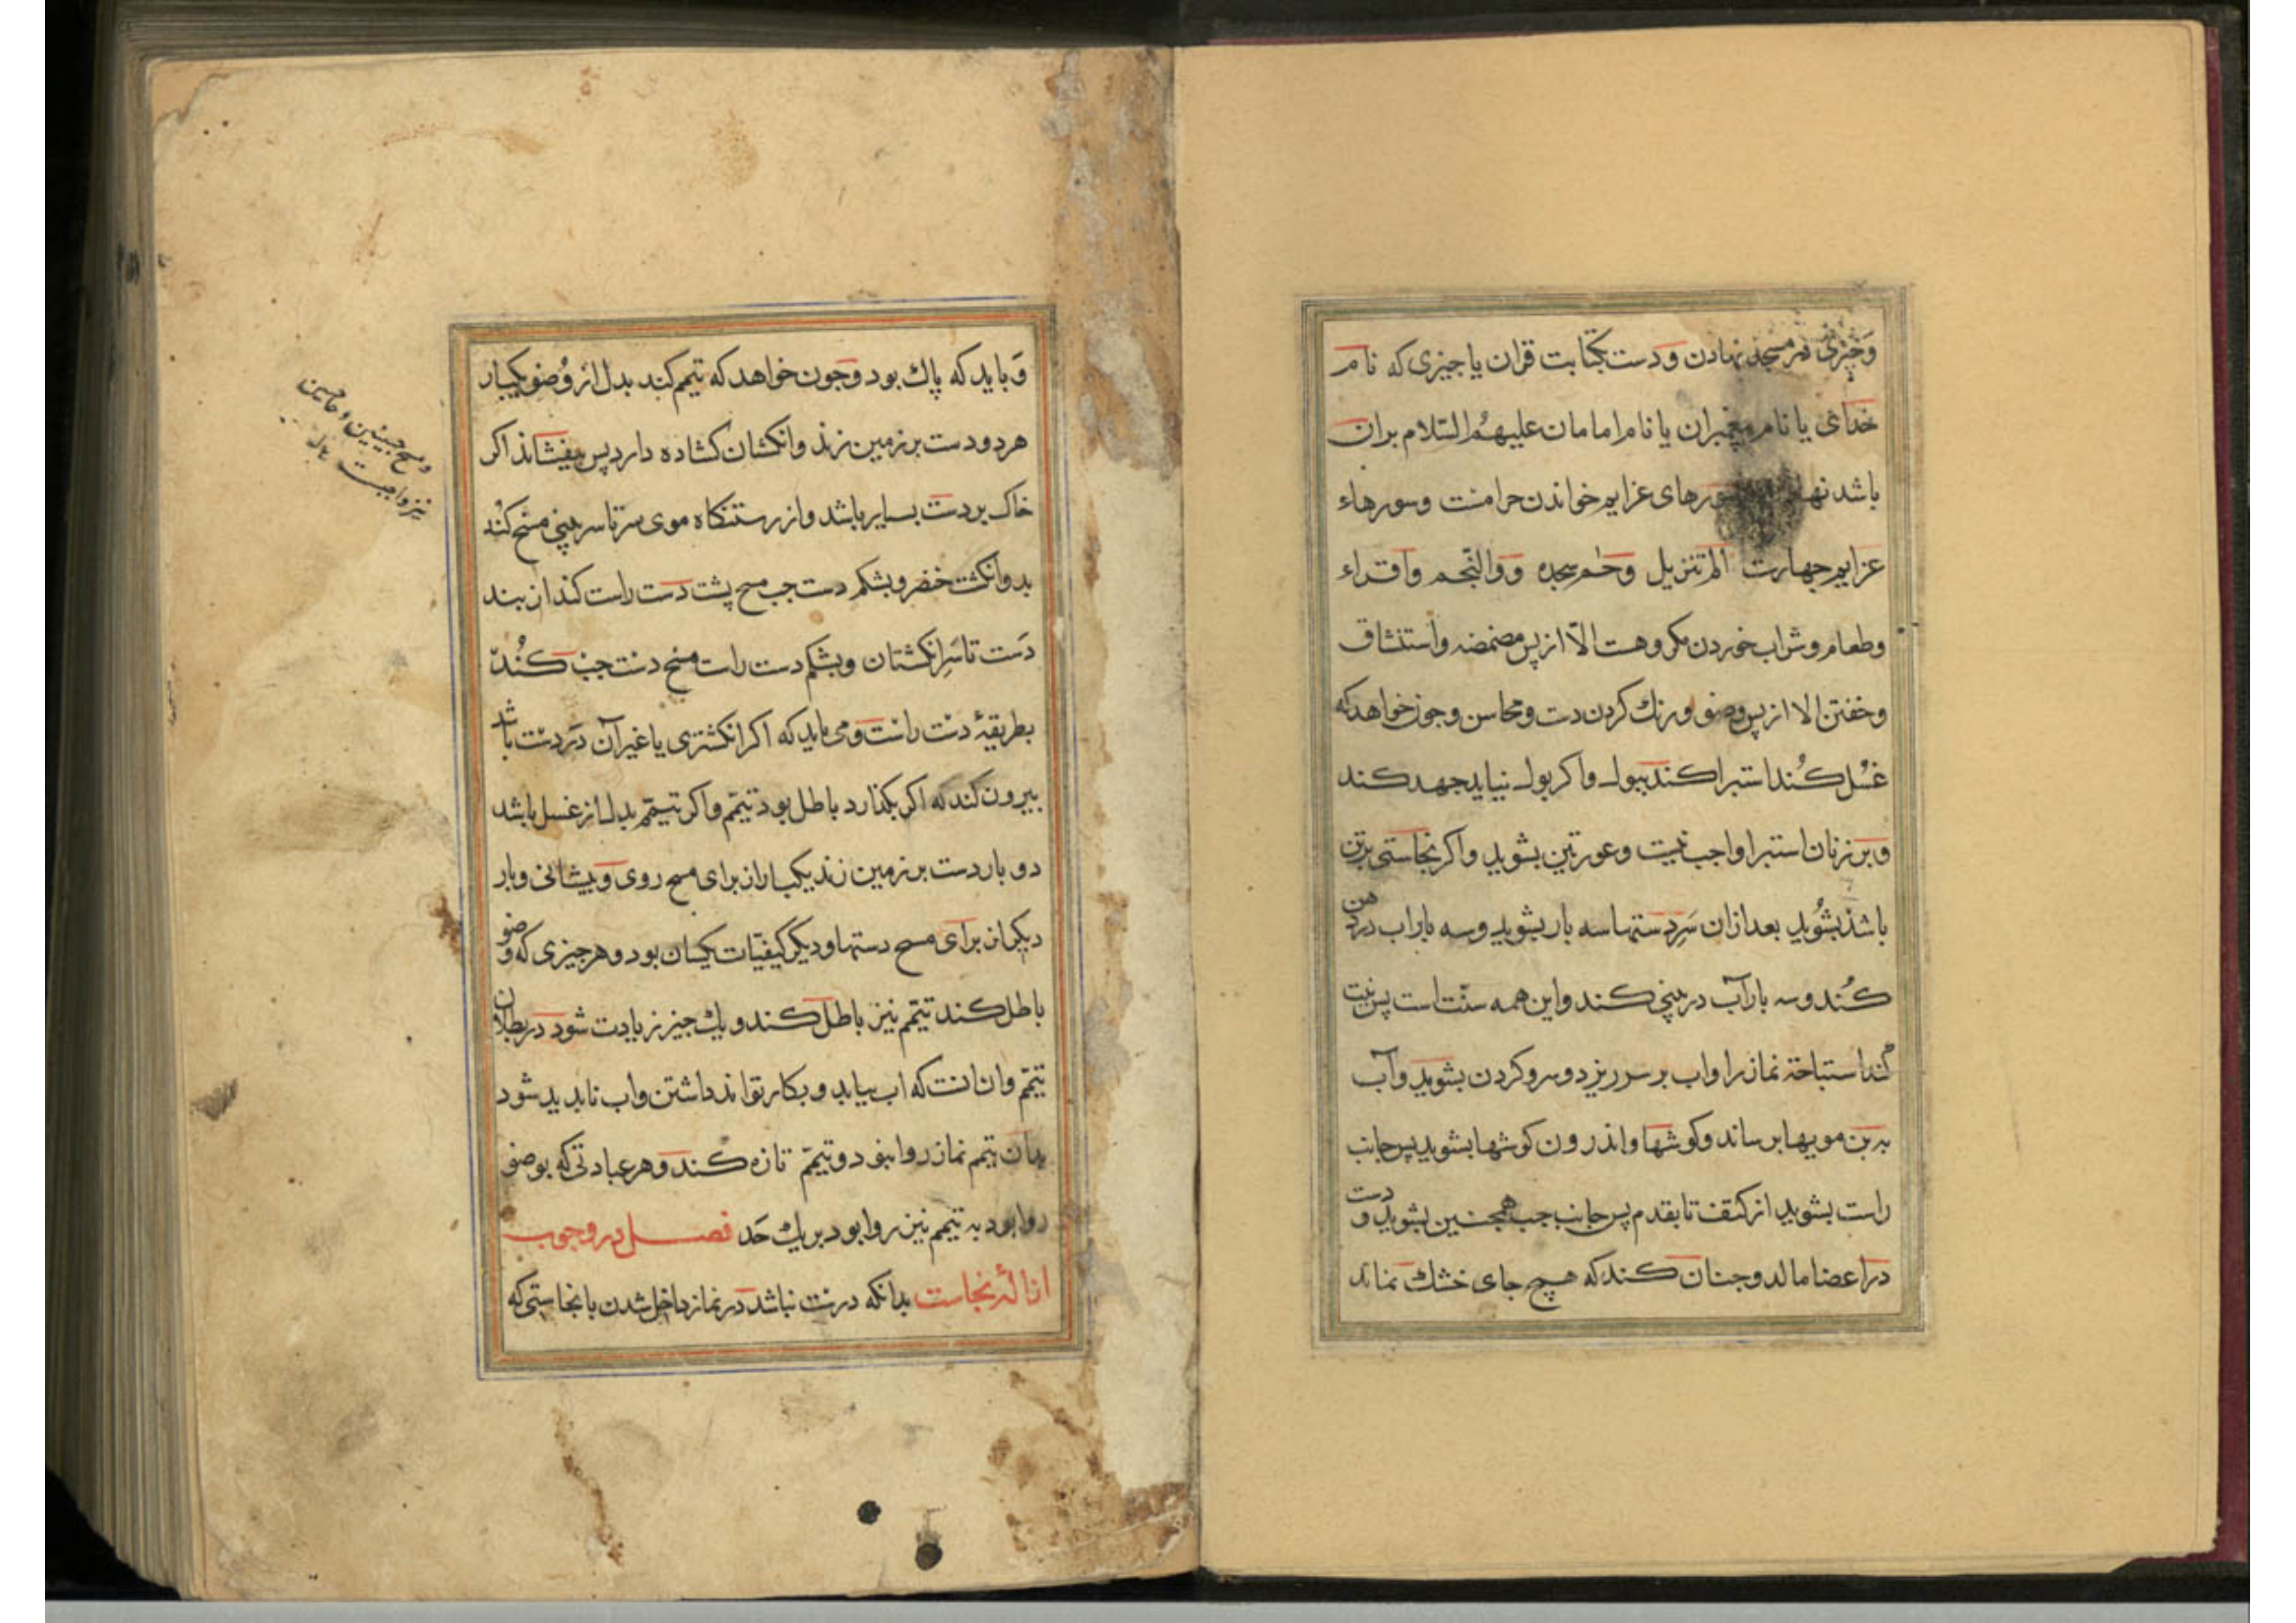 وچیزی در مسجد نهادن و دست بکتابت قران یا جیزی که نام
خدای یا نام پیغمبران یا نام امامان علیهم السّلام بران
باشد نهادن سورهای عزایم خواندن حرامست وسورهاء
عزایم جهارست الم تنزیل وحم سجده و والنّجم واقراء
وطعام وشراب خوردن مکروهست الّا از پس مضمضه واستنشاق
وخفتن الا از پس وضو ورنك کردن دست ومحاسن وجون خواهد که
غسُل کُند استبرا کند ببول واکر بول نیاید جهد کند
وبر زنان استبرا واجب نیست وعورتین بشوید واکر نجاستی برتن
باشد بشُوید بعد ازان سَرِدستها سه بار بشوید وسه بار اب در دهن
کُند وسه بار آب در بینی کند واین همه سنّت است پس نیت
کُند استباحة نماز را واب بر سر ریزد وسر وکردن بشوید وآب
به بن مویها برساند وکوشها واندرون کوشها بشوید پس جانب
راست بشوید از کتف تا بقدم پس جانب جب همجنین بشوید و دست
در اعضا مالد وجنان کند که هیچ جای خشك نماند
وَباید که پاك بود وجون خواهد که تیمم کند بدل از وُضو یکبار
هر دو دست بر زمین زند وانکشتان کشاده دارد پس بیفشاند اکر
خاك بر دست بسیار باشد واز رستنکاه موی سر تا سر بینی مسح کُند
بدو انکشت خنصر وبشکم دست جب مسح پشت دست راست کند از بند
دَست تا سَرِ انکشتان وبشکم دست راست مسح دست جب کُند
بطریقهٔ دست راست ومی باید که اکر انکشتری یا غیر آن دَر دست باشد
بیرون کند که اکر بکذارد باطل بود تیمّم واکر تیمّم بدل از غسل باشد
دو بار دست بر زمین زند یکبار از برای مسح روی وپیشانی وبار
دیکر از برای مسح دستها ودیکر کیفیّات یکسان بود وهر جیزی که وضو
باطل کند تیمّم نیز باطل کند ویك جیز زیادت شود در بطلان
تیمّم وان انست که اب بیابد وبکار تواند داشتن واب نابدید شود
بدان تیمم نماز روا نبود وتیمّم تازه کند وهر عبادتی که بوضو
روا بود به تیمم نیز روا بود بر یك حَد فصل در وجوب
ازالهٔ نجاست بدانکه درست نباشد در نماز داخل شدن با نجاستی که
ومسح جبینین وحاجبین
نیز واجبست